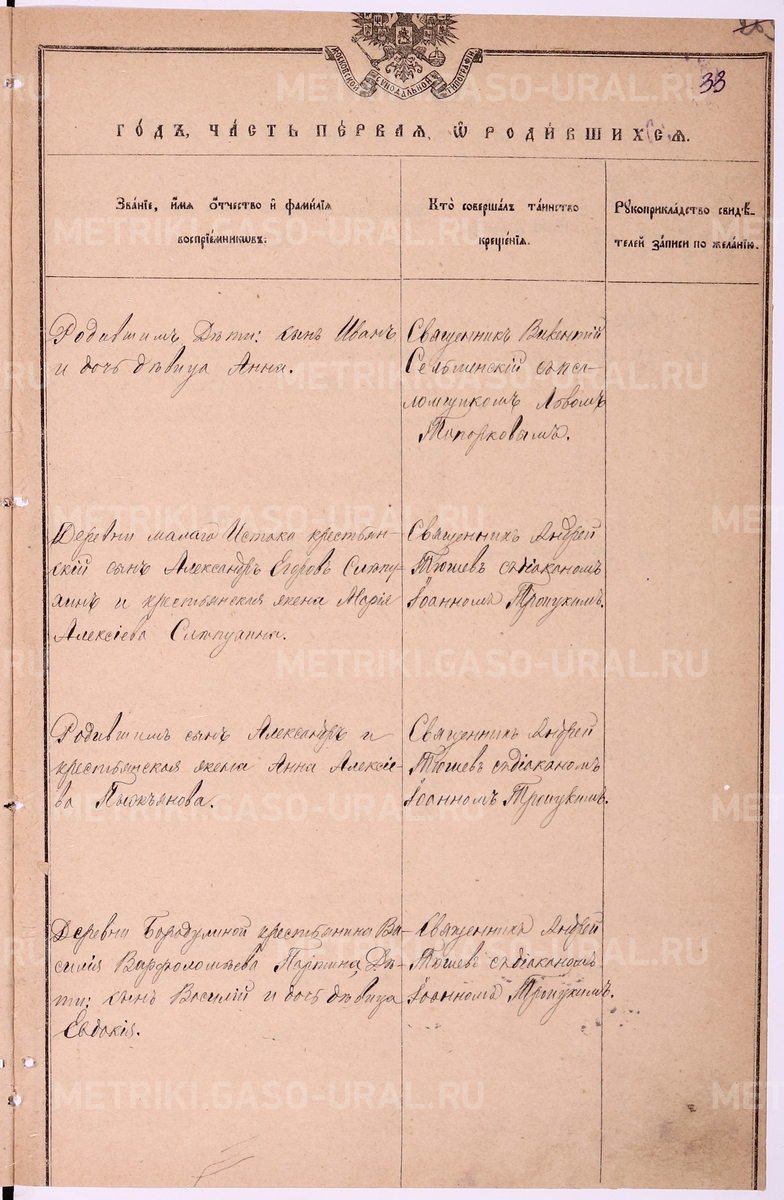 МОСКОВСКОЙ СѴНОДАЛЬНОЙ ТИПОГРАФІИ
33
ГОДЪ, ЧАСТЬ ПЕРВАЯ, Ѿ РОДИВШИХСЯ.
Званіе, имя отчество и фамилія
воспріемниковъ.
Кто совершалъ таинство
крещенія.
Рукоприкладство свидѣ-
телей записи по желанію.
Родившимъ Дѣти: сынъ Иванъ
и дочь дѣвица Анна.
Священникъ Викентій
Сельменскій съ пса-
ломщикомъ Львомъ
Топорковымъ.
Деревни малаго Истока крестьян-
скій сынъ Александръ Егоровъ
и крестьянская жена Марія
Алексіева
Священникъ Андрей
Тюшевъ съ діакономъ
Іоанномъ Троицкимъ.
Родившимъ сынъ Александръ и
крестьянская жена Анна Алексіе-
ва
Священникъ Андрей
Тюшевъ съ діакономъ
Іоанномъ Троицкимъ.
Деревни Бородулиной крестьянина Ва-
силія Варфоломѣева Партина Дѣ-
ти: сынъ Василій и дочь дѣвица
Евдокія.
Священникъ Андрей
Тюшевъ съ діакономъ
Іоанномъ Троицкимъ.
METRIKI.GASO-URAL.RU